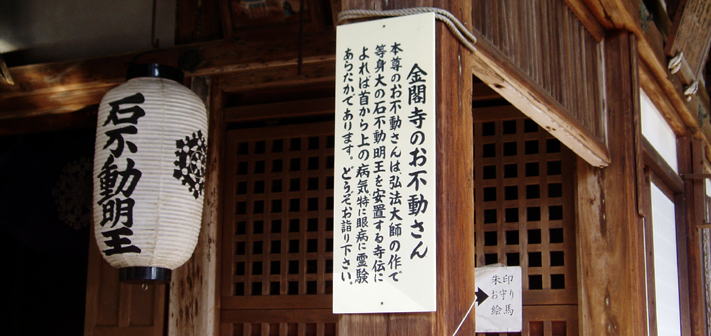 石不動明王
金閣寺のお不動さん
本尊のお不動さんは、弘法大師の作で
等身大の石不動明王を安置する寺伝に
よれば首から上の病気、特に眼病に霊験
あらたかであります。どうぞお詣り下さい。
朱印
お守り
絵馬